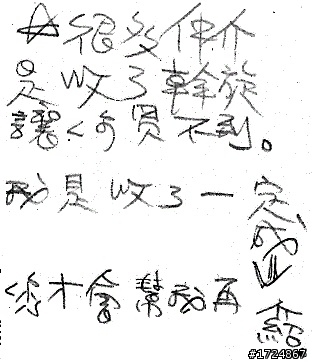 ☆很多仲介
是收了斡旋
讓你買不到。
我是收了一定成
你才會幫我再
#1724867